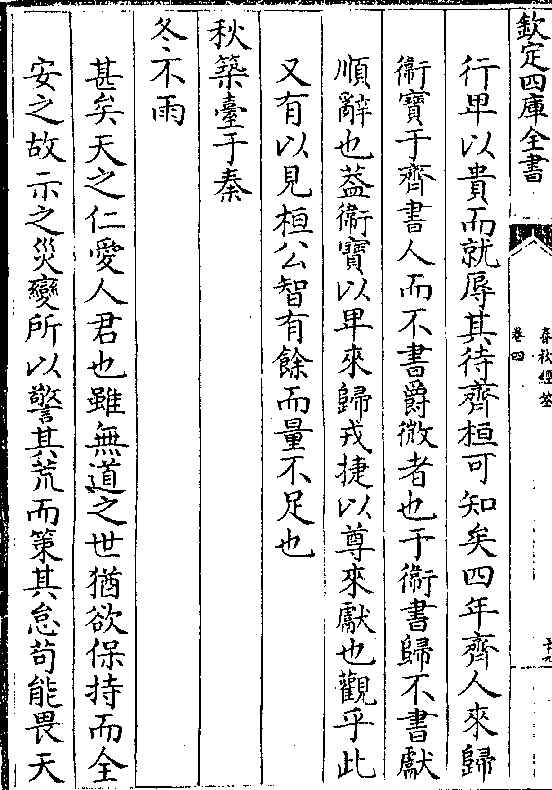 欽定四庫全書
春秋經筌
卷四
行卑以貴而就辱其待齊桓可知矣四年齊人來歸
衞寶于齊書人而不書爵微者也于衞書歸不書獻
順辭也葢衞寶以卑來歸戎捷以尊來獻也觀乎此
又有以見桓公智有餘而量不足也
秋築臺于秦
冬不雨
甚矣天之仁愛人君也雖無道之世猶欲保持而全
安之故示之災變所以警其荒而策其怠苟能畏天